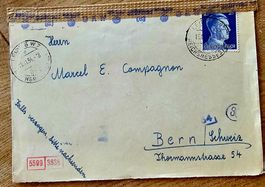 Herrn
Marcel E. Compagnon
Bern/Schweiz
Thormannstrasse 54
Falls verzogen bitte nachsenden
5599 3858